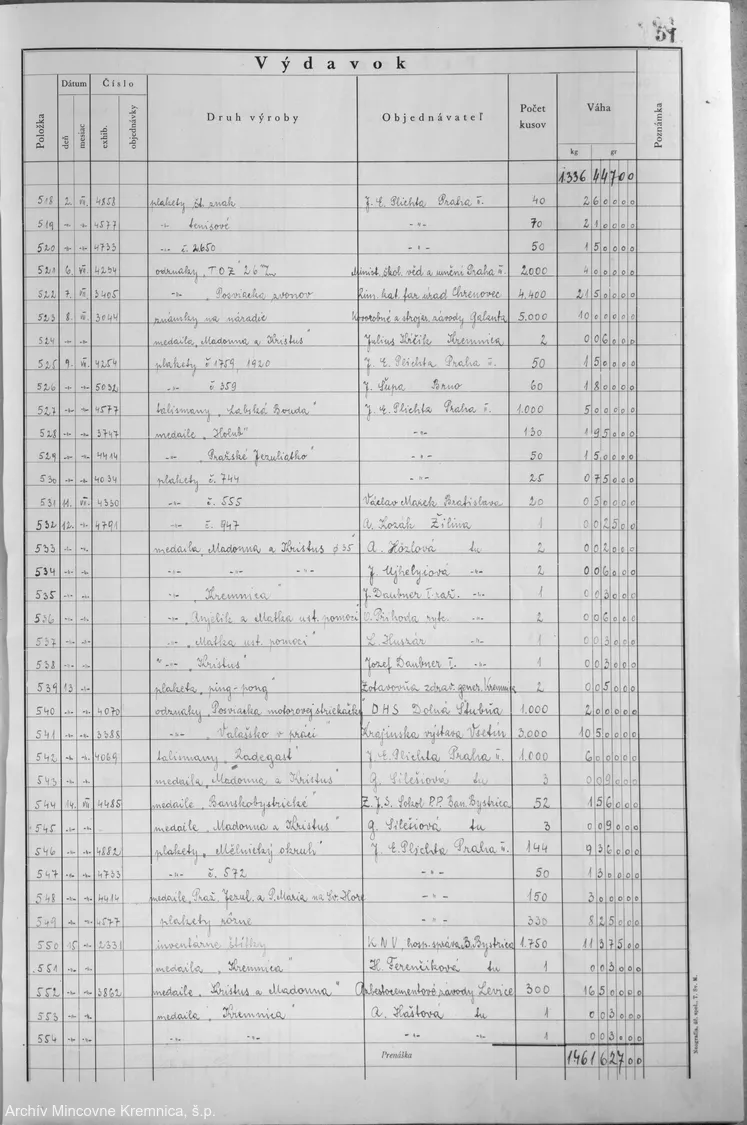 51
Výdavok
Položka Dátum deň mesiac Číslo exhib. objednávky Druh výroby Objednávateľ Počet kusov Váha kg gr Poznámka
1336 44700
518 2. VI. 4858 plakety št. znak J. E. Plichta Praha II. 40 2 6 0 0 0 0
519 -"- -"- 4577 -"- tenisové -"- 70 2 1 0 0 0 0
520 -"- -"- 4733 -"- č. 2650 -"- 50 1 5 0 0 0 0
521 6. VI. 4234 odznaky „TOZ" 2000 4 0 0 0 0 0
522 7. VI. 3405 -"- „Posviacka zvonov Rím. kat. far. úrad Chrenovec 4.400 21 5 0 0 0 0
523 8. VI. 3044 známky na náradie Kovorobné a strojár. závody Galanta 5.000 10 0 0 0 0 0
524 -"- medaila „Madonna a Kristus" Július Kremnica 2 0 0 6 0 0 0
525 9. VI. 4254 plakety č 1759 1920 J. E. Plichta Praha II. 50 1 5 0 0 0 0
526 -"- -"- 5032 -"- č 359 J. Šupa Brno 60 1 8 0 0 0 0
527 -"- -"- 4577 talismany „Labská Bouda" J. E. Plichta Praha II. 1.000 5 0 0 0 0 0
528 -"- -"- 3747 medaile „Holub" -"- 130 1 9 5 0 0 0
529 -"- -"- 4414 -"- „Pražské Jezuliatko" -"- 50 1 5 0 0 0 0
530 -"- -"- 4034 plakety č. 744 -"- 25 0 7 5 0 0 0
531 11. VI. 4330 -"- č. 555 Václav Marek Bratislava 20 0 5 0 0 0 0
532 12. -"- 4791 -"- č. 947 A. Kozák Žilina 1 0 0 2 5 0 0
533 -"- -"- medaila „Madonna a Kristus ∅ 35" A. Hózlová tu 2 0 0 2 0 0 0
534 -"- -"- -"- -"- -"- J. Ujhelyiová -"- 2 0 0 6 0 0 0
535 -"- -"- -"- „Kremnica" J. Daubner -"- 1 0 0 3 0 0 0
536 -"- -"- -"- „Anjelik a Matka ust. pomoci" Príhoda ryt. -"- 2 0 0 6 0 0 0
537 -"- -"- -"- „Matka ust. pomoci" L. Huszár -"- 1 0 0 3 0 0 0
538 -"- -"- -"- „Kristus" Jozef Daubner I. -"- 1 0 0 3 0 0 0
539 13 -"- plaketa „ping-pong" Zotavovňa zdrav. gener. Kremnica 2 0 0 5 0 0 0
540 -"- -"- 4070 odznaky „Posviacka motorovej striekačky" DHS Dolná Štubňa 1.000 2 0 0 0 0 0
541 -"- -"- 3388 -"- „Valašsko v práci" Krajinská výstava Vsetín 3.000 10 5 0 0 0 0
542 -"- -"- 4069 talismany „Radegast" J. E. Plichta Praha II. 1.000 6 0 0 0 0 0
543 -"- -"- medaila „Madonna a Kristus" G. Silešiová tu 3 0 0 9 0 0 0
544 14. VI 4485 medaile „Banskobystrické" Z.J.S. Sokol P.P. Ban. Bystrica 52 1 5 6 0 0 0
545 -"- -"- medaile „Madonna a Kristus" G. Silešiová tu 3 0 0 9 0 0 0
546 -"- -"- 4882 plakety „Mělnický okruh" J. E. Plichta Praha II. 144 9 3 6 0 0 0
547 -"- -"- 4733 -"- č. 572 -"- 50 1 3 0 0 0 0
548 -"- -"- 4414 medaile „Praž. Jezul. a P. Maria na Sv. Hore -"- 150 3 0 0 0 0 0
549 -"- -"- 4577 plakety rôzne -"- 330 8 2 5 0 0 0
550 15. -"- 2331 inventárne štítky KNV, hosp. správa B. Bystrica 1.750 11 3 7 5 0 0
551 -"- -"- medaila „Kremnica" H. Ferenčíková tu 1 0 0 3 0 0 0
552 -"- -"- 3862 medaile „Kristus a Madonna" Azbestocementové závody Levice 300 16 5 0 0 0 0
553 -"- -"- medaila „Kremnica" A. Haštová tu 1 0 0 3 0 0 0
554 -"- -"- -"- -"- -"- -"- 1 0 0 3 0 0 0
Prenáška 1461 62700
Archív Mincovne Kremnica, š.p.